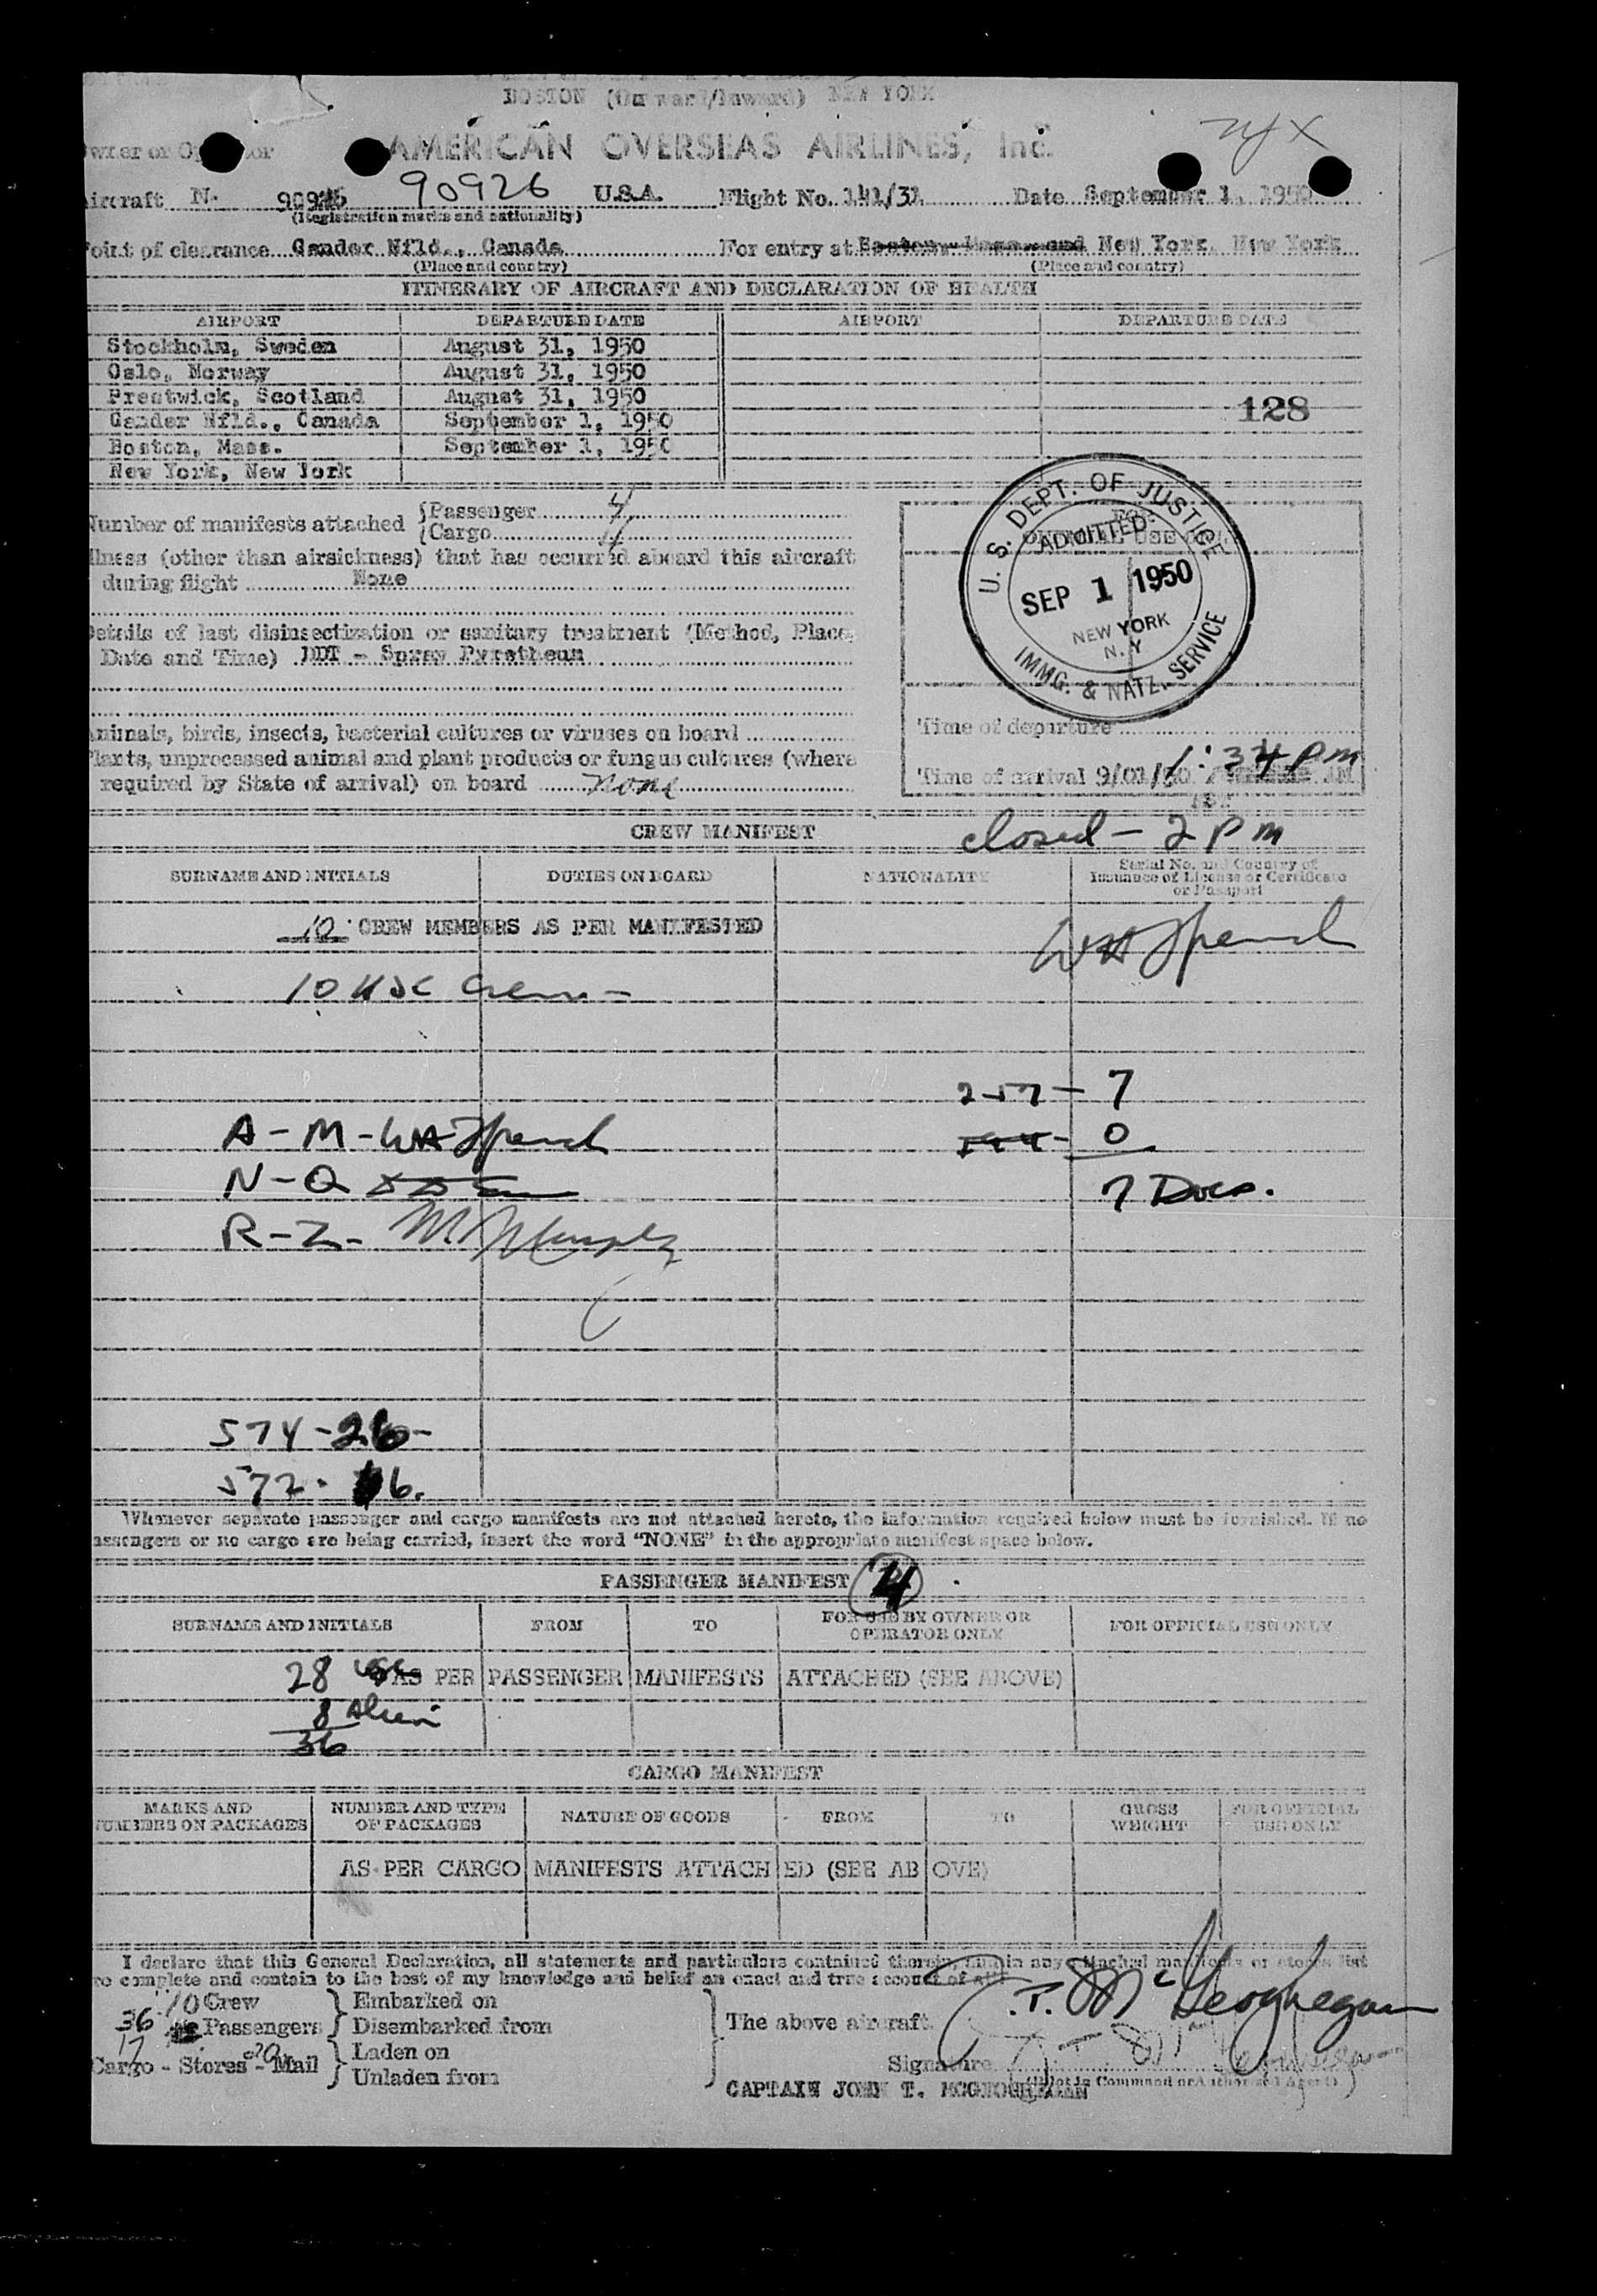 BOSTON (Outward/Inward) NEW YORK
AMERICAN OVERSEAS AIRLINES, Inc.
Aircraft N- 90926 U.S.A. Flight No. 141/31 Date September 1, 1950
(Registration marks and nationality)
Point of clearance Gander Nfld., Canada For entry at Boston, Mass. and New York, New York
(Place and country) (Place and country)
ITINERARY OF AIRCRAFT AND DECLARATION OF HEALTH
AIRPORT DEPARTURE DATE AIRPORT DEPARTURE DATE
Stockholm, Sweden August 31, 1950
Oslo, Norway August 31, 1950
Prestwick, Scotland August 31, 1950
128
Gander Nfld., Canada September 1, 1950
Boston, Mass. September 1, 1950
New York, New York
Number of manifests attached {Passenger 4
{Cargo 4
Illness (other than airsickness) that has occurred aboard this aircraft
during flight None
Details of last disinsectization or sanitary treatment (Method, Place,
Date and Time) DDT - Spray Pyretheum
Animals, birds, insects, bacterial cultures or viruses on board
Plants, unprocessed animal and plant products or fungus cultures (where
required by State of arrival) on board none
U. S. DEPT. OF JUSTICE
ADMITTED
SEP 1 1950
NEW YORK
N. Y
IMMG. & NATZ. SERVICE
Time of departure
Time of arrival 9/01/50 1:34 pm
closed - 2 pm
CREW MANIFEST
SURNAME AND INITIALS DUTIES ON BOARD NATIONALITY Serial No. and Country of
Issuance of License or Certificate
or Passport
10 CREW MEMBERS AS PER MANIFESTED
10 USC Crew -
257 - 7
A - M -
0
N - Q
7 Docs.
R - Z -
574 - 26 -
572 - 16.
Whenever separate passenger and cargo manifests are not attached hereto, the information required below must be furnished. If no
passengers or no cargo are being carried, insert the word "NONE" in the appropriate manifest space below.
PASSENGER MANIFEST 4
SURNAME AND INITIALS FROM TO FOR USE BY OWNER OR
OPERATOR ONLY FOR OFFICIAL USE ONLY
28 USC AS PER PASSENGER MANIFESTS ATTACHED (SEE ABOVE)
8 Alien
36
CARGO MANIFEST
MARKS AND
NUMBERS ON PACKAGES NUMBER AND TYPE
OF PACKAGES NATURE OF GOODS FROM TO GROSS
WEIGHT FOR OFFICIAL
USE ONLY
AS PER CARGO MANIFESTS ATTACHED (SEE ABOVE)
I declare that this General Declaration, all statements and particulars contained therein, and in any attached manifests or stores list
are complete and contain to the best of my knowledge and belief an exact and true account of all
10 Crew } Embarked on
36 Passengers } Disembarked from
The above aircraft.
17
Cargo - Stores - Mail } Laden on
Unladen from
J. T. McGeoghegan
Signature
(Pilot in Command or Authorized Agent)
CAPTAIN JOHN T. MCGEOGHEGAN